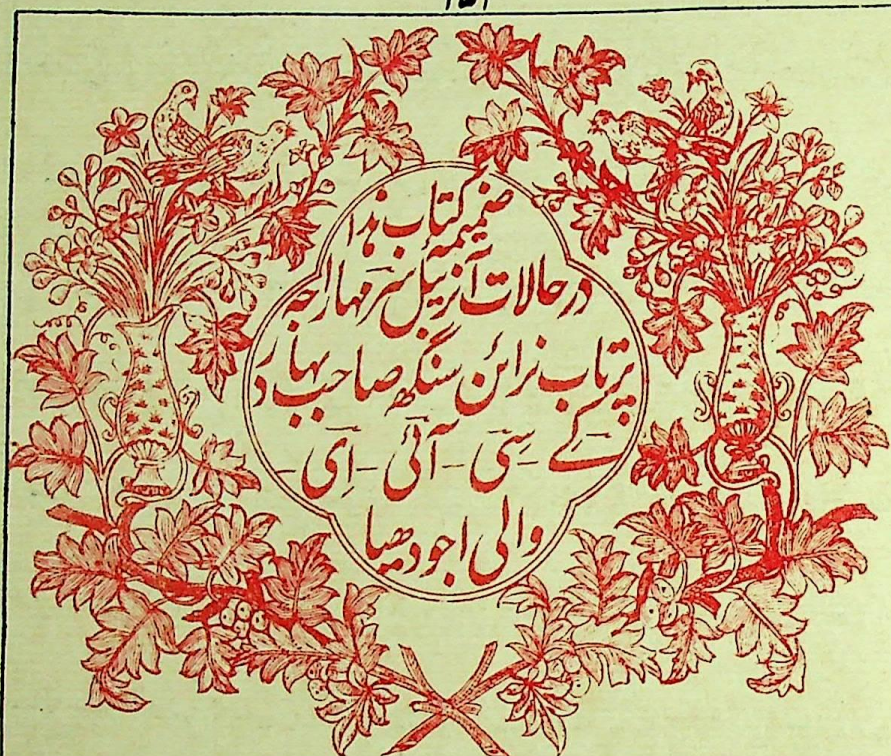 ضمیمہ کتاب ہذا
در حالات آنریبل سر مہاراجہ
پرتاب نرائن سنگھ صاحب بہادر
کے - سی - آئی - ای -
والی اجودھیا